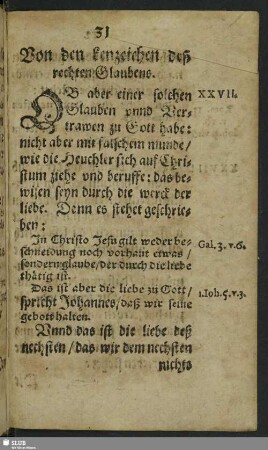 31
Von den kenzeichen deß
rechten Glaubens.
OB aber einer solchen XXVII.
Glauben vnnd Ver-
trawen zu Gott habe:
nicht aber mit falschem munde/
wie die Heuchler sich auf Chri-
stum ziehe vnd beruffe: das be-
wisen seyn durch die werck der
liebe. Denn es stehet geschrie-
ben:
In Christo Jesu gilt weder be- Gal. 3. v. 6.
schneidung noch vorhaut etwas/
sondern glaube/der durch die liebe
thätig ist.
Das ist aber die liebe zu Gott/ 1. Ioh. 5. v. 3.
spricht Johannes/daß wir seine
gebott halten.
Vnnd das ist die liebe deß
nechsten/das wir dem nechsten
nichts
SLUB